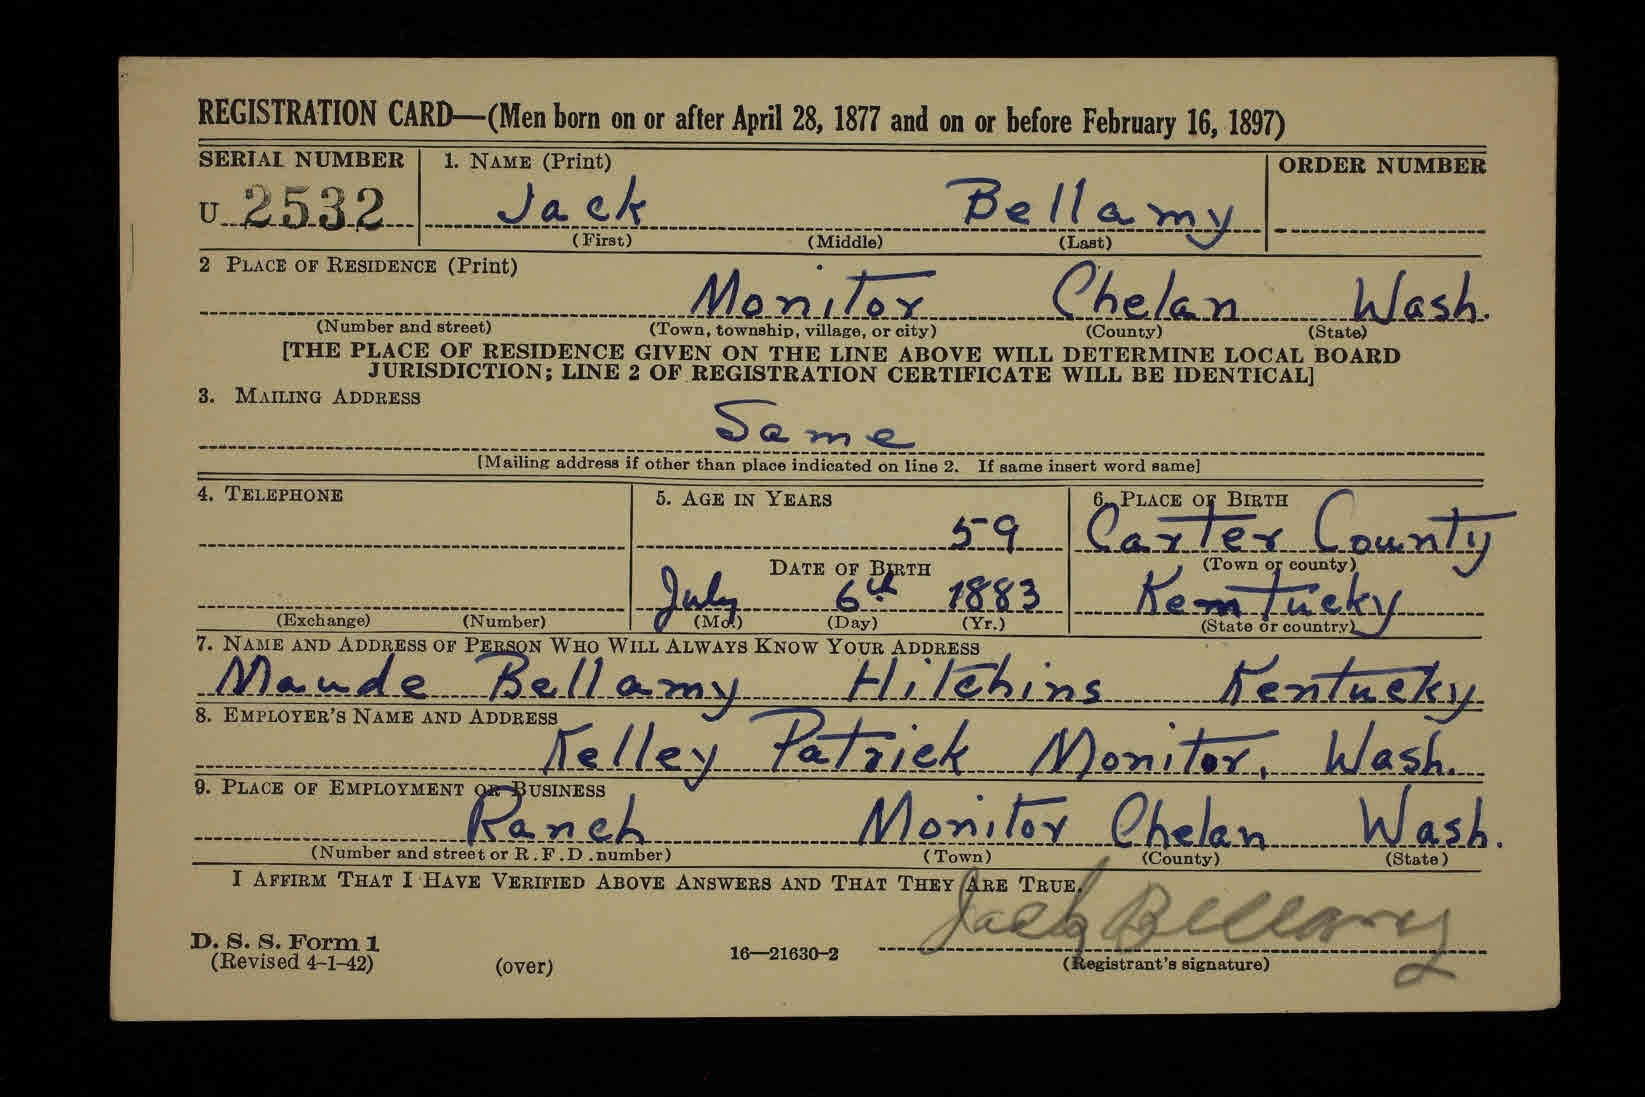 REGISTRATION CARD—(Men born on or after April 28, 1877 and on or before February 16, 1897)
SERIAL NUMBER 1. NAME (Print) ORDER NUMBER
U 2532 Jack Bellamy
(First) (Middle) (Last)
2 PLACE OF RESIDENCE (Print)
Monitor Chelan Wash.
(Number and street) (Town, township, village, or city) (County) (State)
[THE PLACE OF RESIDENCE GIVEN ON THE LINE ABOVE WILL DETERMINE LOCAL BOARD
JURISDICTION; LINE 2 OF REGISTRATION CERTIFICATE WILL BE IDENTICAL]
3. MAILING ADDRESS
Same
[Mailing address if other than place indicated on line 2. If same insert word same]
4. TELEPHONE 5. AGE IN YEARS 6. PLACE OF BIRTH
59 Carter County
DATE OF BIRTH (Town or county)
July 6th 1883 Kentucky
(Exchange) (Number) (Mo.) (Day) (Yr.) (State or country)
7. NAME AND ADDRESS OF PERSON WHO WILL ALWAYS KNOW YOUR ADDRESS
Maude Bellamy Hitchins Kentucky
8. EMPLOYER'S NAME AND ADDRESS
Kelley Patrick Monitor, Wash.
9. PLACE OF EMPLOYMENT OR BUSINESS
Ranch Monitor Chelan Wash.
(Number and street or R. F. D. number) (Town) (County) (State)
I AFFIRM THAT I HAVE VERIFIED ABOVE ANSWERS AND THAT THEY ARE TRUE.
Jack Bellamy
D. S. S. Form 1
(Revised 4-1-42) (over) 16—21630-2 (Registrant's signature)